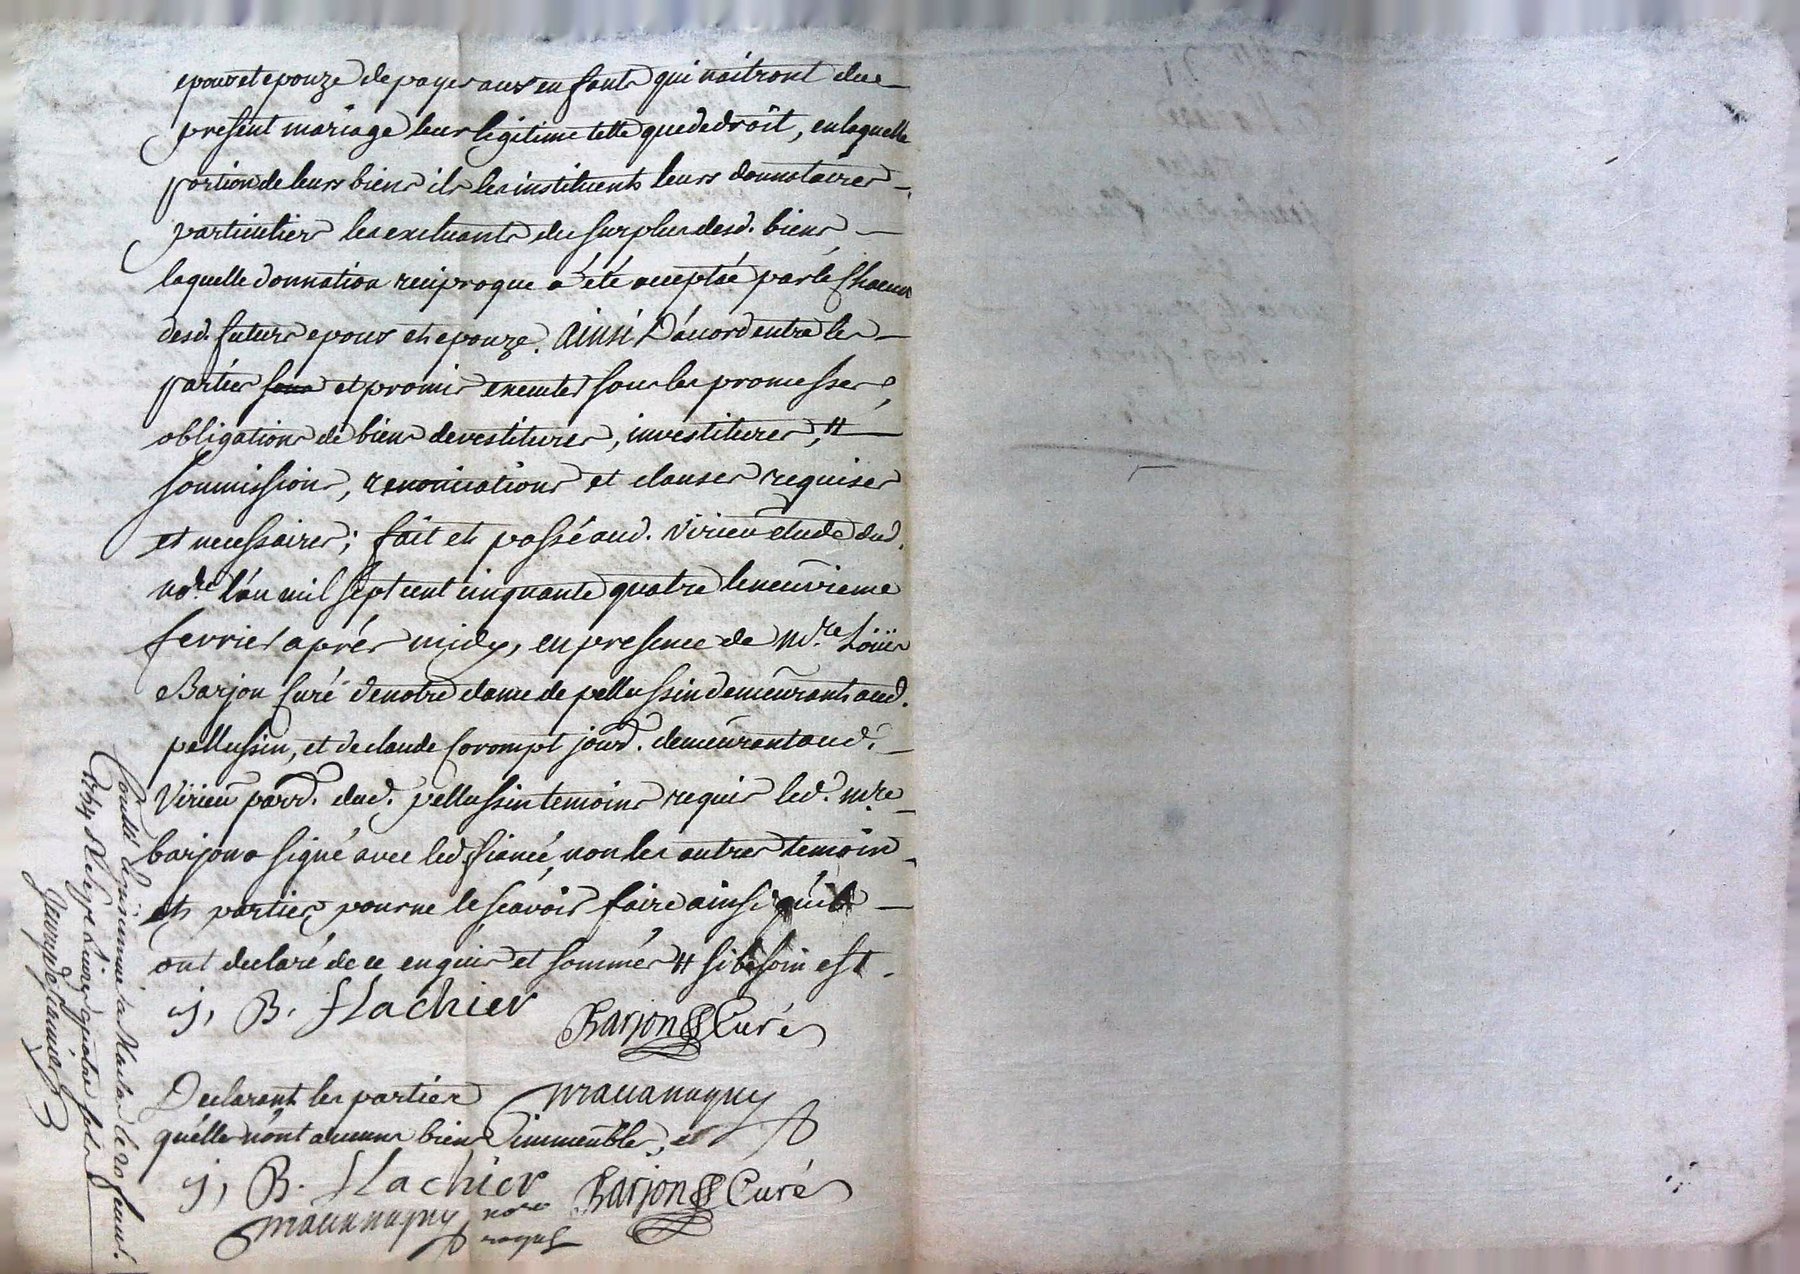 epoux et epouze de payer aux enfants qui naitront du
present mariage leur legitime telle que de droit, en laquelle
portion de leurs biens ils les instituent leurs donnataires
particuliers les excluants du surplus desd. biens
laquelle donnation reciproque a été acceptée par le Chacun
desd. futurs epoux et epouze. ainsi D'acord entre les
parties et promis executer sous les promesses,
obligations de biens devestitures, investitures, #
soumissions, renonciations et clauses requises
et necessaires; fait et passé aud. Virieu etude dud.
no.re l'an mil sept cent cinquante quatre le neuvieme
fevrier aprés midy, en presence de m.re Loüis
Barjon Curé de notre dame de pellussin demeurant aud.
pellussin, et de claude Corompt jourd. demeurant aud.
Virieu parr. dud. pellussin temoins requis led. m.re
barjon a signé avec led. fiancé, non les autres temoin
et parties pour ne le scavoir faire ainsi qu'ils
ont declaré de ce enquis et sommés # si besoin est.
j, B. flachier
Barjon Curé
Declarent les parties
mauanagny
qu'elles n'ont aucuns biens immeubles,
j, B. flachier
Barjon Curé
mauanagny no.re
royal
Controllé
le 20 feuvr.
1754